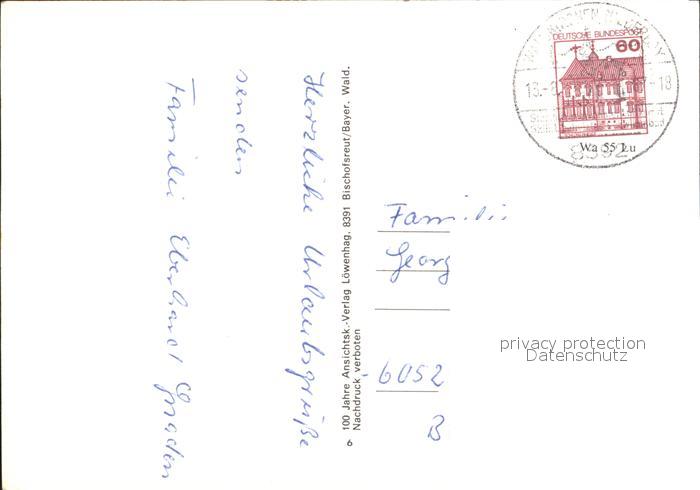 Herzliche Urlaubsgrüße
senden
Familie Eberhard
100 Jahre Ansichtsk.-Verlag Löwenhag, 8391 Bischofsreut/Bayer. Wald.
Nachdruck verboten
DEUTSCHE BUNDESPOST
60
Wa 55 Lu
8392
Familie
Georg
6052
B
privacy protection
Datenschutz